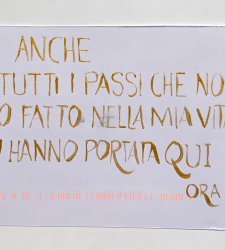 ANCHE
TUTTI I PASSI CHE NO
O FATTO NELLA MIA VITA
I HANNO PORTATA QUI
ORA